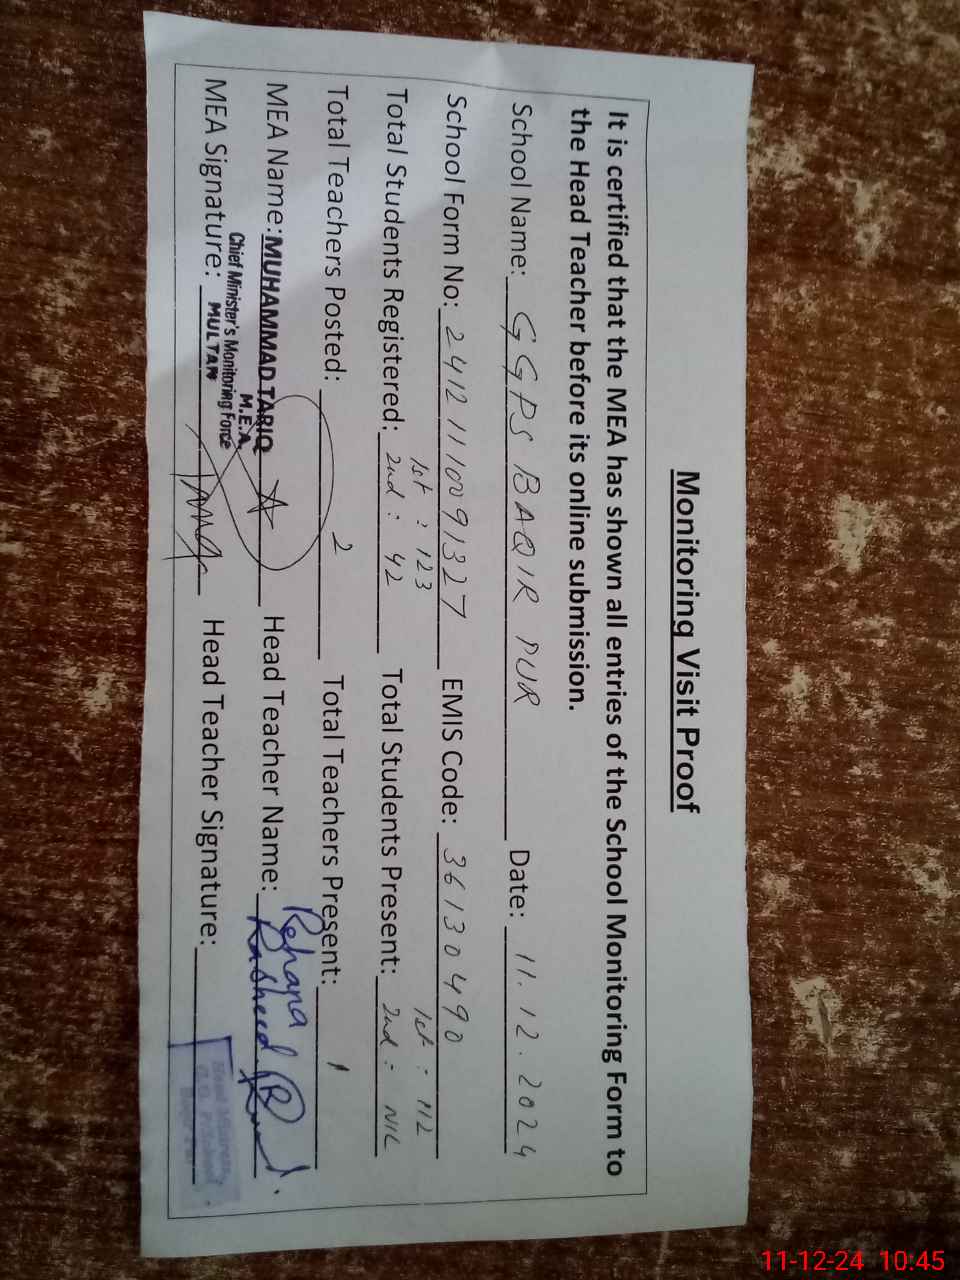 Monitoring Visit Proof
It is certified that the MEA has shown all entries of the School Monitoring Form to
the Head Teacher before its online submission.
School Name: GGPS BAQIR PUR Date: 11.12.2024
School Form No: 24121110091327 EMIS Code: 36130490
1st : 123 1st : 112
Total Students Registered: 2nd : 42 Total Students Present: 2nd : NIL
Total Teachers Posted: 2 Total Teachers Present: 1
MEA Name: MUHAMMAD TARIQ Head Teacher Name: Rehana Rasheed
M.E.A.
Chief Minister's Monitoring Force
MULTAN
MEA Signature: Head Teacher Signature:
Head Mistress
11-12-24 10:45